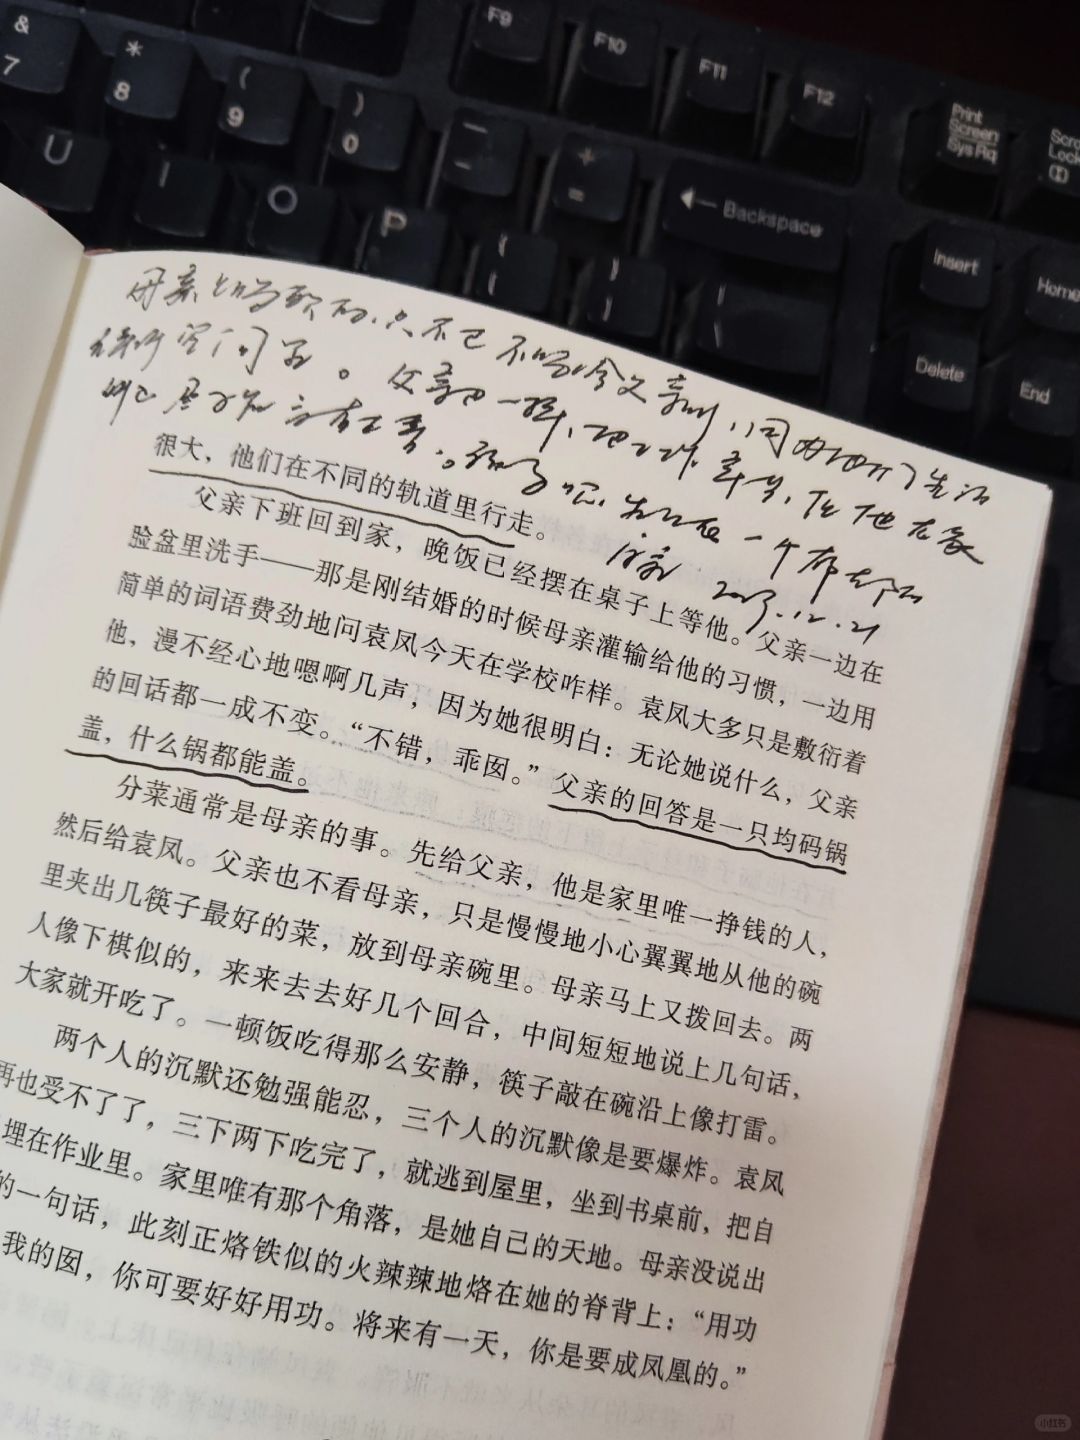 &
7
*
8
(
9
)
0
—
+
=
F9
F10
F11
F12
Print
Screen
Sys Rq
Scro
Lock
U
I
O
P
{
[
}
]
|
Backspace
Insert
Home
Delete
End
母亲
不同
父亲也一样
2023.12.21
很大，他们在不同的轨道里行走。
父亲下班回到家，晚饭已经摆在桌子上等他。父亲一边在
脸盆里洗手——那是刚结婚的时候母亲灌输给他的习惯，一边用
简单的词语费劲地问袁凤今天在学校咋样。袁凤大多只是敷衍着
他，漫不经心地嗯啊几声，因为她很明白：无论她说什么，父亲
的回话都一成不变。“不错，乖囡。”父亲的回答是一只均码锅
盖，什么锅都能盖。
分菜通常是母亲的事。先给父亲，他是家里唯一挣钱的人，
然后给袁凤。父亲也不看母亲，只是慢慢地小心翼翼地从他的碗
里夹出几筷子最好的菜，放到母亲碗里。母亲马上又拨回去。两
人像下棋似的，来来去去好几个回合，中间短短地说上几句话，
大家就开吃了。一顿饭吃得那么安静，筷子敲在碗沿上像打雷。
两个人的沉默还勉强能忍，三个人的沉默像是要爆炸。袁凤
再也受不了了，三下两下吃完了，就逃到屋里，坐到书桌前，把自
埋在作业里。家里唯有那个角落，是她自己的天地。母亲没说出
的一句话，此刻正烙铁似的火辣辣地烙在她的脊背上：“用功
我的囡，你可要好好用功。将来有一天，你是要成凤凰的。”
小红书